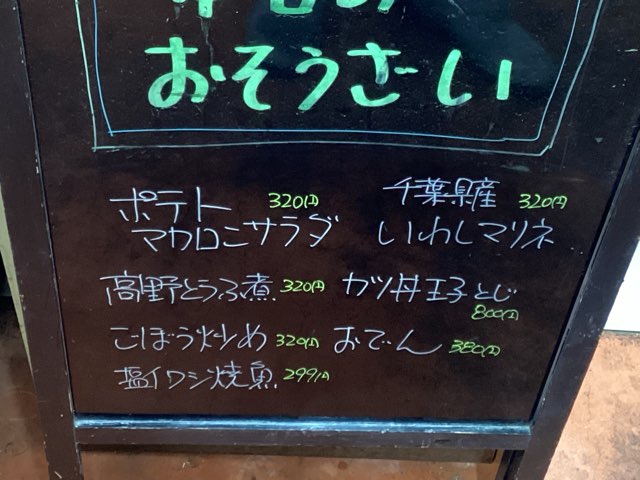 本日の
おそうざい
ポテト 320円
マカロニサラダ
千葉県産 320円
いわしマリネ
高野とうふ煮 320円
カツ丼玉子とじ
800円
ごぼう炒め 320円
おでん 380円
塩イワシ焼魚 299円